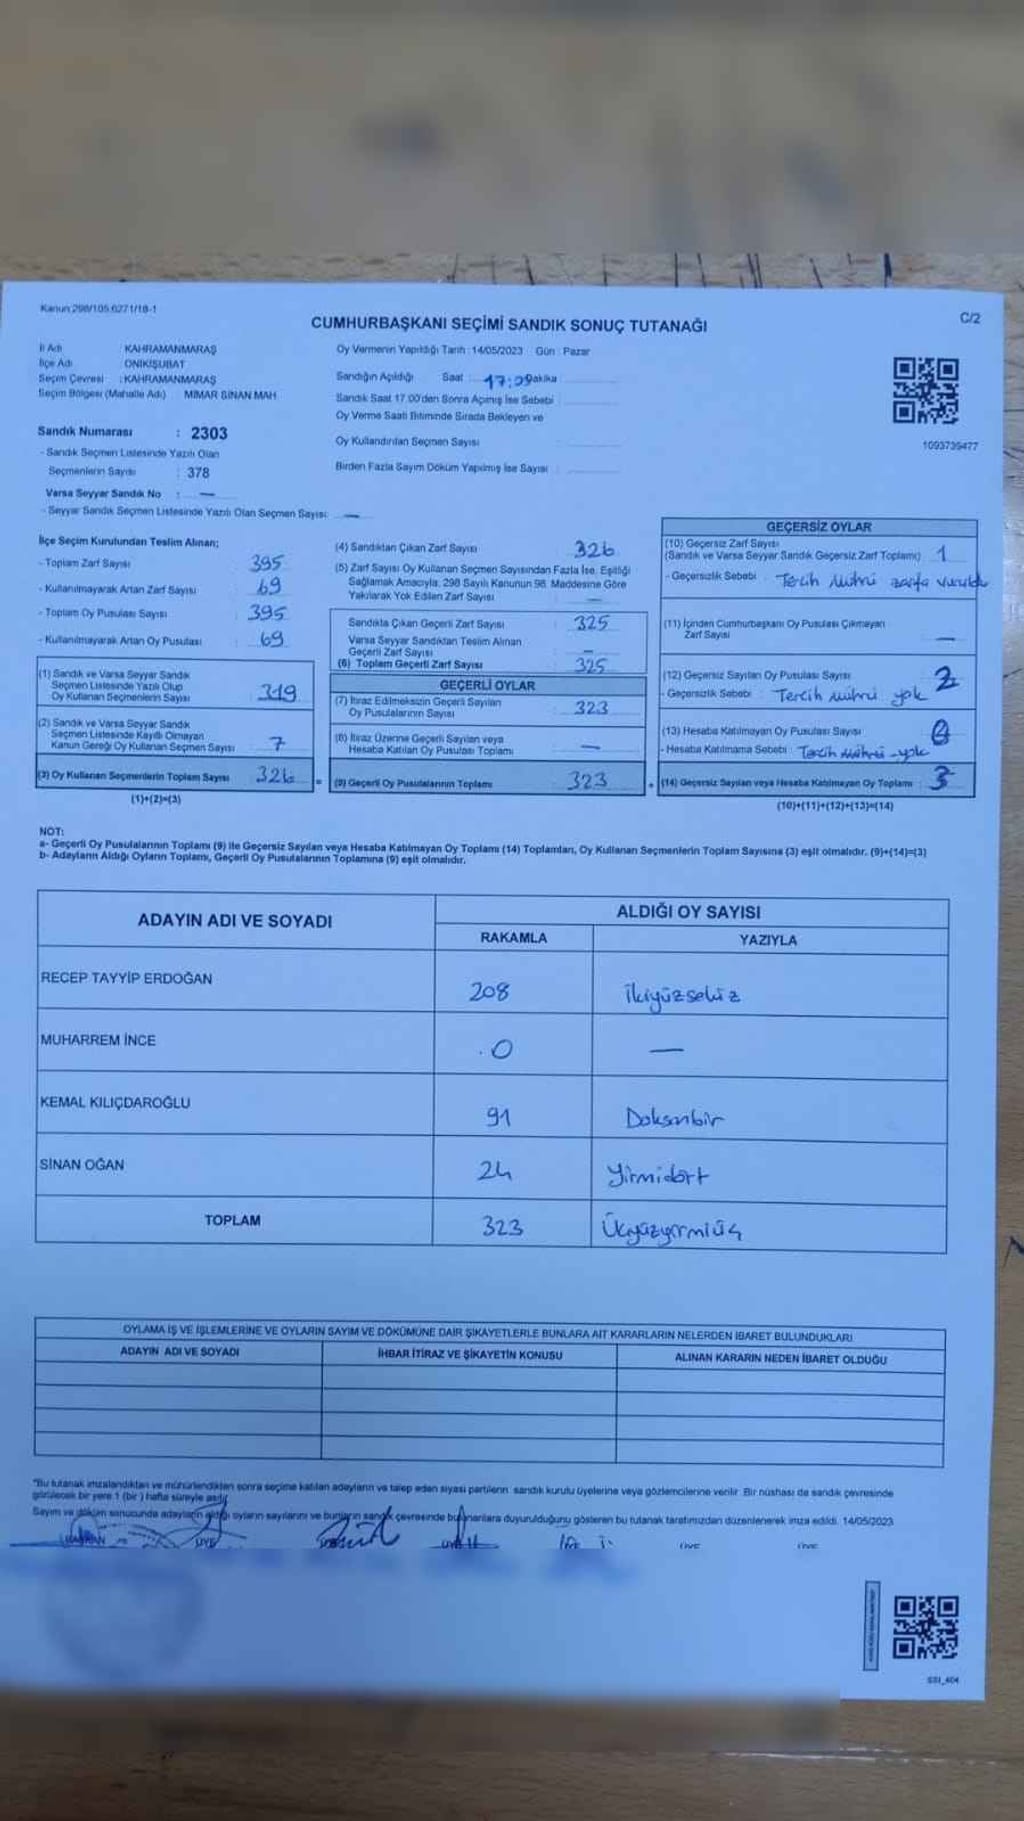 Kanun:298/105,6271/18-1
C/2
CUMHURBAŞKANI SEÇİMİ SANDIK SONUÇ TUTANAĞI
İl Adı : KAHRAMANMARAŞ
İlçe Adı : ONİKİŞUBAT
Seçim Çevresi : KAHRAMANMARAŞ
Seçim Bölgesi (Mahalle Adı) MİMAR SİNAN MAH.
Sandık Numarası : 2303
- Sandık Seçmen Listesinde Yazılı Olan
Seçmenlerin Sayısı : 378
Varsa Seyyar Sandık No : —
- Seyyar Sandık Seçmen Listesinde Yazılı Olan Seçmen Sayısı: —
Oy Vermenin Yapıldığı Tarih :14/05/2023 Gün : Pazar
Sandığın Açıldığı Saat : 17:09 Dakika
Sandık Saat 17.00'den Sonra Açılmış İse Sebebi
Oy Verme Saati Bitiminde Sırada Bekleyen ve
Oy Kullandırılan Seçmen Sayısı :
Birden Fazla Sayım Döküm Yapılmış İse Sayısı :
1093739477
İlçe Seçim Kurulundan Teslim Alınan;
- Toplam Zarf Sayısı : 395
- Kullanılmayarak Artan Zarf Sayısı : 69
- Toplam Oy Pusulası Sayısı : 395
- Kullanılmayarak Artan Oy Pusulası : 69
(1) Sandık ve Varsa Seyyar Sandık
Seçmen Listesinde Yazılı Olup
Oy Kullanan Seçmenlerin Sayısı : 319
(2) Sandık ve Varsa Seyyar Sandık
Seçmen Listesinde Kayıtlı Olmayan
Kanun Gereği Oy Kullanan Seçmen Sayısı : 7
(3) Oy Kullanan Seçmenlerin Toplam Sayısı : 326
(1)+(2)=(3)
(4) Sandıktan Çıkan Zarf Sayısı : 326
(5) Zarf Sayısı Oy Kullanan Seçmen Sayısından Fazla İse, Eşitliği
Sağlamak Amacıyla, 298 Sayılı Kanunun 98. Maddesine Göre
Yakılarak Yok Edilen Zarf Sayısı : —
Sandıkta Çıkan Geçerli Zarf Sayısı : 325
Varsa Seyyar Sandıktan Teslim Alınan
Geçerli Zarf Sayısı : —
(6) Toplam Geçerli Zarf Sayısı : 325
GEÇERLİ OYLAR
(7) İtiraz Edilmeksizin Geçerli Sayılan
Oy Pusulalarının Sayısı : 323
(8) İtiraz Üzerine Geçerli Sayılan veya
Hesaba Katılan Oy Pusulası Toplamı : —
= (9) Geçerli Oy Pusulalarının Toplamı : 323
GEÇERSİZ OYLAR
(10) Geçersiz Zarf Sayısı
(Sandık ve Varsa Seyyar Sandık Geçersiz Zarf Toplamı) : 1
- Geçersizlik Sebebi : Tercih Mührü zarfa vuruldu
(11) İçinden Cumhurbaşkanı Oy Pusulası Çıkmayan
Zarf Sayısı : —
(12) Geçersiz Sayılan Oy Pusulası Sayısı : 2
- Geçersizlik Sebebi : Tercih mührü yok
(13) Hesaba Katılmayan Oy Pusulası Sayısı :
- Hesaba Katılmama Sebebi : Tercih mührü yok
+ (14) Geçersiz Sayılan veya Hesaba Katılmayan Oy Toplamı : 3
(10)+(11)+(12)+(13)=(14)
NOT:
a- Geçerli Oy Pusulalarının Toplamı (9) ile Geçersiz Sayılan veya Hesaba Katılmayan Oy Toplamı (14) Toplamları, Oy Kullanan Seçmenlerin Toplam Sayısına (3) eşit olmalıdır. (9)+(14)=(3)
b- Adayların Aldığı Oyların Toplamı, Geçerli Oy Pusulalarının Toplamına (9) eşit olmalıdır.
ADAYIN ADI VE SOYADI
ALDIĞI OY SAYISI
RAKAMLA YAZIYLA
RECEP TAYYİP ERDOĞAN 208 İkiyüzsekiz
MUHARREM İNCE 0 —
KEMAL KILIÇDAROĞLU 91 Doksanbir
SİNAN OĞAN 24 Yirmidört
TOPLAM 323 Üçyüzyirmiüç
OYLAMA İŞ VE İŞLEMLERİNE VE OYLARIN SAYIM VE DÖKÜMÜNE DAİR ŞİKAYETLERLE BUNLARA AİT KARARLARIN NELERDEN İBARET BULUNDUKLARI
ADAYIN ADI VE SOYADI İHBAR İTİRAZ VE ŞİKAYETİN KONUSU ALINAN KARARIN NEDEN İBARET OLDUĞU
"Bu tutanak imzalandıktan ve mühürlendikten sonra seçime katılan adayların ve talep eden siyasi partilerin sandık kurulu üyelerine veya gözlemcilerine verilir. Bir nüshası da sandık çevresinde
görülecek bir yere 1 (bir ) hafta süreyle asılır.
Sayım ve döküm sonucunda adayların aldığı oyların sayılarını ve bunların sandık çevresinde bulunanlara duyurulduğunu gösteren bu tutanak tarafımızdan düzenlenerek imza edildi. 14/05/2023
BAŞKAN ÜYE ÜYE ÜYE ÜYE
SSI_404